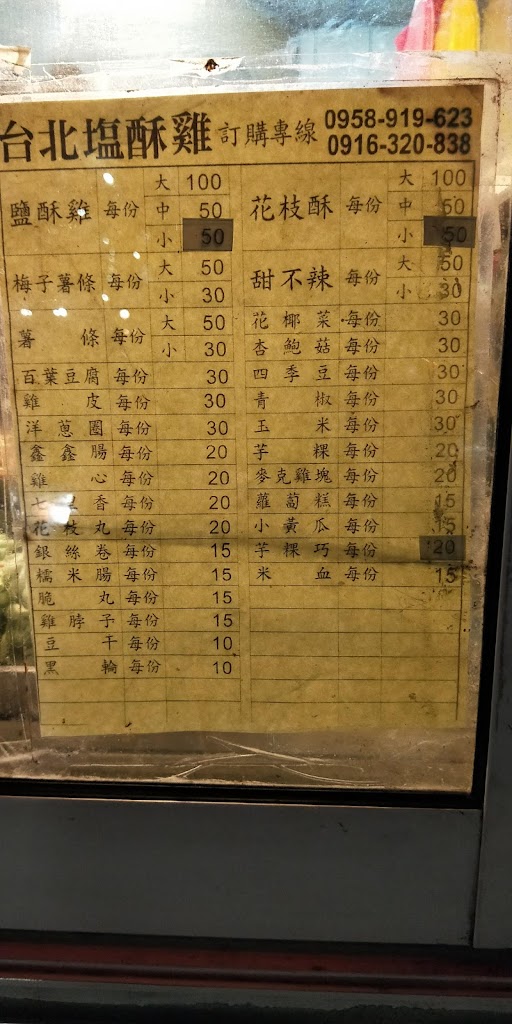 台北塩酥雞 訂購專線 0958-919-623
0916-320-838
鹽酥雞 每份 大 100
中 50
小 50
梅子薯條 每份 大 50
小 30
薯條 每份 大 50
小 30
百葉豆腐 每份 30
雞皮 每份 30
洋蔥圈 每份 30
鑫鑫腸 每份 20
雞心 每份 20
七里香 每份 20
花枝丸 每份 20
銀絲卷 每份 15
糯米腸 每份 15
脆丸 每份 15
雞脖子 每份 15
豆干 每份 10
黑輪 每份 10
花枝酥 每份 大 100
中 50
小 50
甜不辣 每份 大 50
小 30
花椰菜 每份 30
杏鮑菇 每份 30
四季豆 每份 30
青椒 每份 30
玉米 每份 30
芋粿 每份 20
麥克雞塊 每份 20
蘿蔔糕 每份 15
小黃瓜 每份 15
芋粿巧 每份 20
米血 每份 15